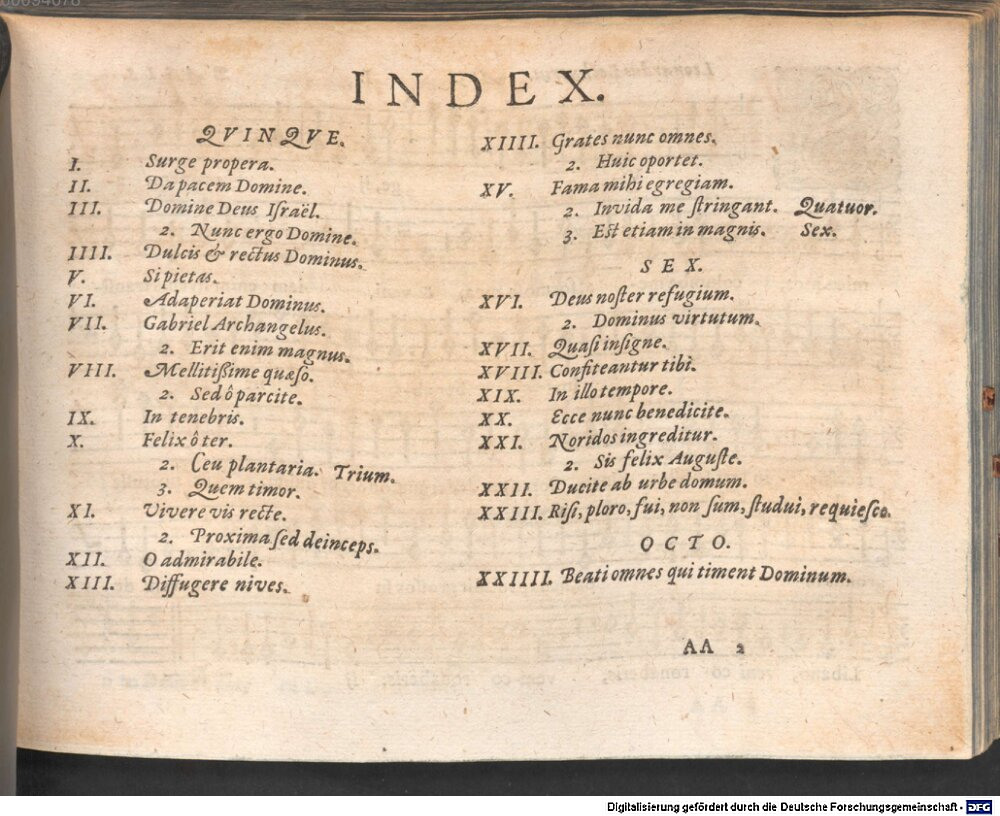 INDEX.
QVINQVE.
I. Surge propera.
II. Da pacem Domine.
III. Domine Deus Iſraël.
2. Nunc ergo Domine.
IIII. Dulcis & rectus Dominus.
V. Si pietas.
VI. Adaperiat Dominus.
VII. Gabriel Archangelus.
2. Erit enim magnus.
VIII. Mellitißime quæſo.
2. Sed ô parcite.
IX. In tenebris.
X. Felix ô ter.
2. Ceu plantaria. Trium.
3. Quem timor.
XI. Vivere vis recte.
2. Proxima ſed deinceps.
XII. O admirabile.
XIII. Diffugere nives.
XIIII. Grates nunc omnes.
2. Huic oportet.
XV. Fama mihi egregiam.
2. Invida me ſtringant. Quatuor.
3. Eſt etiam in magnis. Sex.
SEX.
XVI. Deus noſter refugium.
2. Dominus virtutum.
XVII. Quaſi inſigne.
XVIII. Confiteantur tibi.
XIX. In illo tempore.
XX. Ecce nunc benedicite.
XXI. Noridos ingreditur.
2. Sis felix Auguſte.
XXII. Ducite ab urbe domum.
XXIII. Riſi, ploro, fui, non ſum, ſtudui, requieſco.
OCTO.
XXIIII. Beati omnes qui timent Dominum.
AA 2
Digitalisierung gefördert durch die Deutsche Forschungsgemeinschaft - DFG